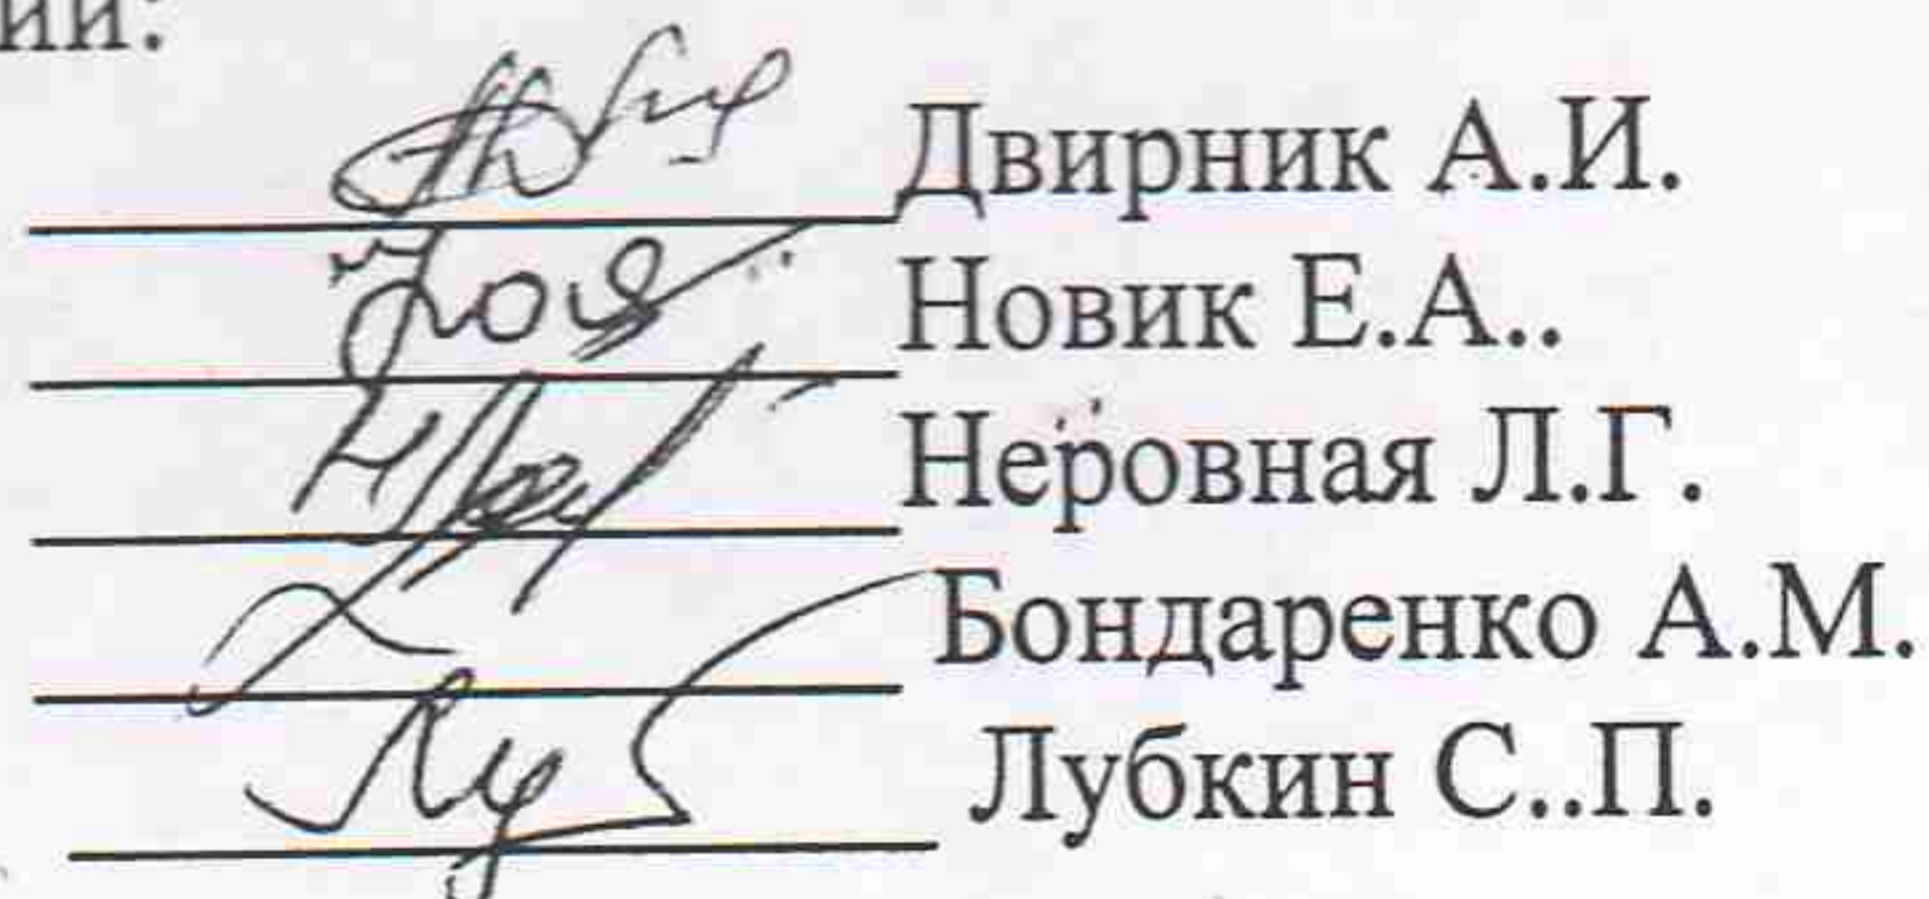 ии:
Двирник А.И.
Новик Е.А..
Неровная Л.Г.
Бондаренко А.М.
Лубкин С..П.